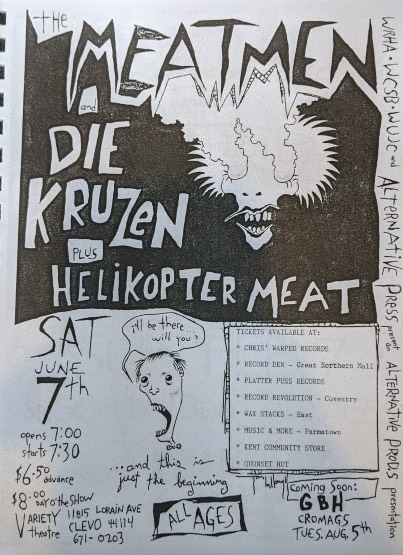 the MEATMEN
and
DIE
KRUZEN
PLUS
HELIKOPTER MEAT
WRHA • WCSB • WUJC and ALTERNATIVE PRESS present an ALTERNATIVE PRODS presentation
SAT
JUNE
7th
opens 7:00
starts 7:30
$6.50 advance
$8.00 day o' the show
VARIETY theatre
11815 LORAIN AVE
CLEVO 44114
671-0203
i'll be there...
will you?
...and this is
just the beginning
ALL AGES
TICKETS AVAILABLE AT:
* CHRIS' WARPED RECORDS
* RECORD DEN - Great Northern Mall
* PLATTER PUSS RECORDS
* RECORD REVOLUTION - Coventry
* WAX STACKS - East
* MUSIC & MORE - Parmatown
* KENT COMMUNITY STORE
* QUONSET HUT
Coming Soon:
GBH
CROMAGS
TUES. AUG. 5th